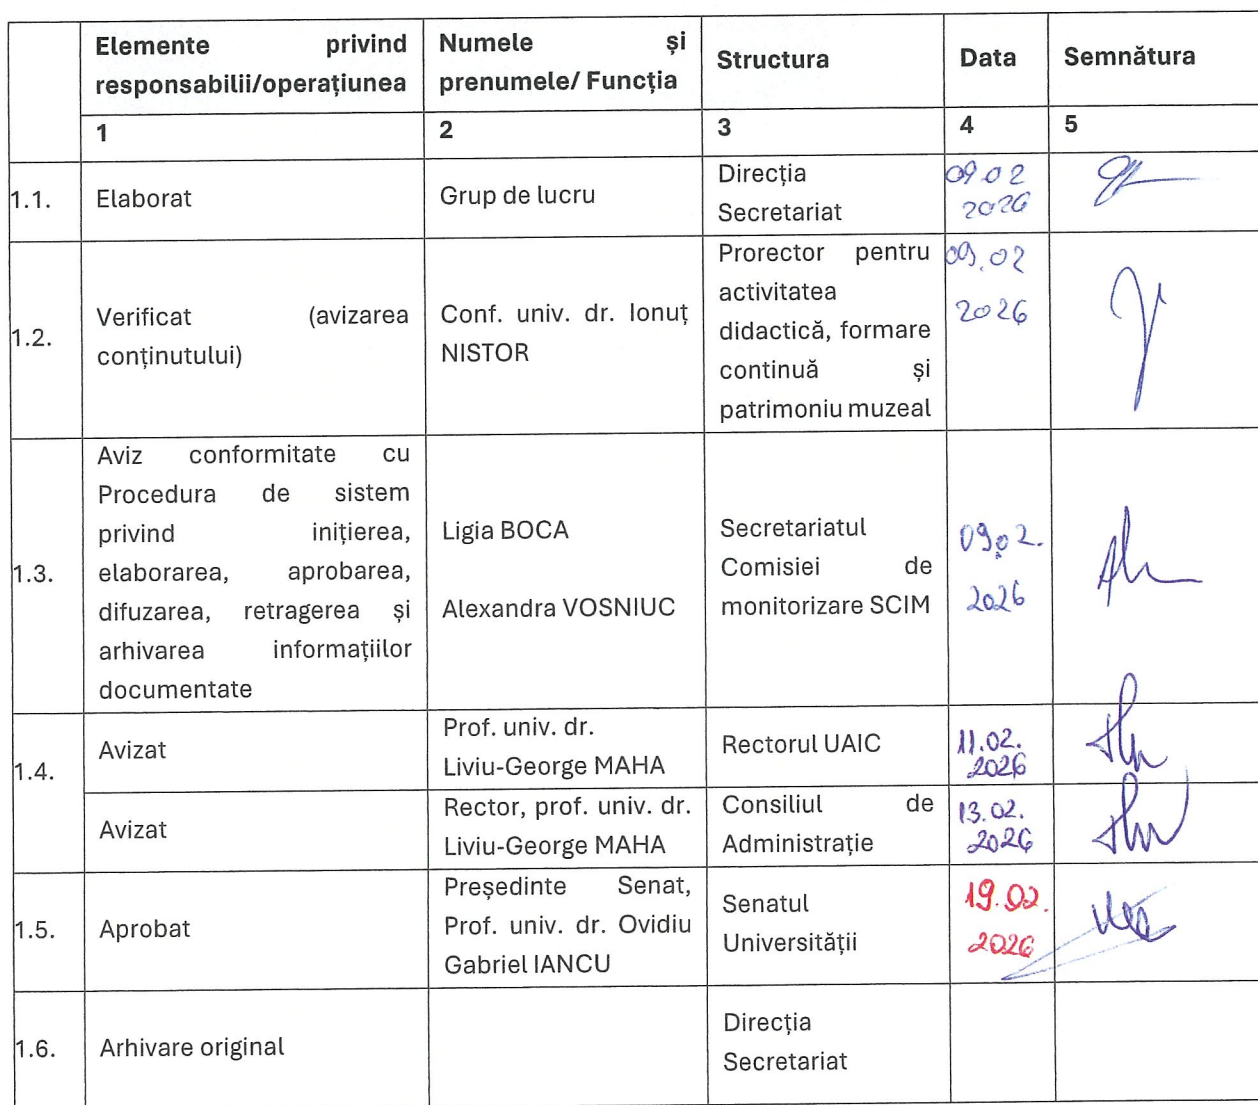 Elemente privind
responsabilii/operațiunea
Numele și
prenumele/ Funcția
Structura
Data
Semnătura
1
2
3
4
5
1.1.
Elaborat
Grup de lucru
Direcția
Secretariat
09.02
2026
1.2.
Verificat (avizarea
conținutului)
Conf. univ. dr. Ionuț
NISTOR
Prorector pentru
activitatea
didactică, formare
continuă și
patrimoniu muzeal
09.02
2026
1.3.
Aviz conformitate cu
Procedura de sistem
privind inițierea,
elaborarea, aprobarea,
difuzarea, retragerea și
arhivarea informațiilor
documentate
Ligia BOCA
Alexandra VOSNIUC
Secretariatul
Comisiei de
monitorizare SCIM
09.02.
2026
1.4.
Avizat
Prof. univ. dr.
Liviu-George MAHA
Rectorul UAIC
11.02.
2026
Avizat
Rector, prof. univ. dr.
Liviu-George MAHA
Consiliul de
Administrație
13.02.
2026
1.5.
Aprobat
Președinte Senat,
Prof. univ. dr. Ovidiu
Gabriel IANCU
Senatul
Universității
19.02.
2026
1.6.
Arhivare original
Direcția
Secretariat